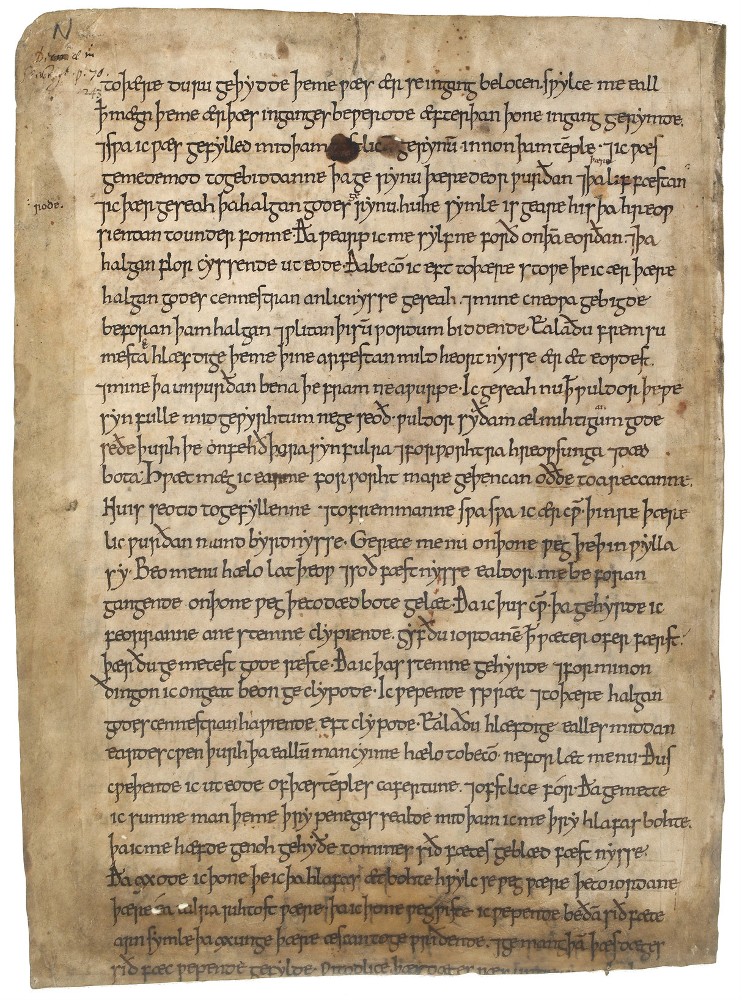 N
rode.
toþære duru geþydde þeme ƿæs ær se ingang belocen. sƿylce me eall
ꝥ mægn þeme ær þæs inganges beƿerode æfterþan þone ingang gerymde.
⁊sƿa ic ƿæs gefylled mid þam gerynū innon þam tēple ⁊ic ƿæs
gemedemod togebiddanne þa ge rynu þære deorƿurðan ⁊þa lif fæstan
⁊ic þær geseah þa halgan godes gerynu. hu he symle is geare his þa hreoƿ
sientan tounder fonne. Ða ƿearp ic me sylfne forð onþa eorðan. ⁊þa
halgan flor cyssende ut eode. Ða becō ic eft toþære stoƿe þe ic ær þære
halgan godes cennestran anlicnysse geseah. ⁊mine cneoƿa gebigde
beforan þam halgan ⁊ƿlitan þisū ƿordum biddende. Eala ðu fremsu
mesta hlæfdige þeme þine arfestan mildheortnysse ær æt eoƿdest.
⁊mine þa unƿurðan bena þe fram ne aƿurpe. Ic geseah nu ꝥ ƿuldor þeƿe
synfulle mid geƿyrhtum ne geseoð. ƿuldor sy ðam ælmihtigum gode
seðe þurh þe onfehð þara synfulra ⁊forƿorhtra hreoƿsunga ⁊dæd
bota. Hƿæt mæg ic earme forƿorht mare geþencan oððe toareccanne.
Nu is seo tid togefyllenne ⁊tofremmanne sƿa sƿa ic ær cƿ̄. þinre þære
licƿurðan mund byrdnysse. Gerece me nu onþone ƿeg þe þin ƿylla
sy. Beo me nu hælo latþeoƿ ⁊soðfæstnysse ealdor. me beforan
gangende onþone ƿeg þe to dæd bote gelæt. Ða ic þus cƿ̄. þa gehyrde ic
feorranne ane stemne clypiende. gyf ðu iordanē ꝥ ƿæter ofer færst.
þær ðu gemetest gode reste. Ða ic þas stemne gehyrde ⁊for minon
ðingon ic ongeat beon geclypode. Ic ƿepende spræc ⁊toþære halgan
godes cennestran haƿiende. eft clypode. Eala ðu hlæfdige ealles middan
eardes cƿen þurh þa eallū mancynne hælo tobecō. ne forlæt me nu. Ðus
cƿeþende ic ut eode of þæs tēples cafertune. ⁊ofstlice for. Ða gemette
ic sumne man þeme þry penegas sealde mid þam ic me þry hlafas bohte.
þa ic me hæfde genoh gehyðe to mines siðfætes geblædfæstnysse.
Ða axode ic þone þe ic þa hlafas æt bohte hƿylc se ƿeg ƿære þe to iordane
þære ea ealra rihtost ƿære. þa ic þone ƿeg ƿiste ic ƿepende beðā siðfæte
arn symle þa axunge þære æscan to geƿriðende. ⁊gemang þā þæs dæges
siðfæc ƿepende gefylde.